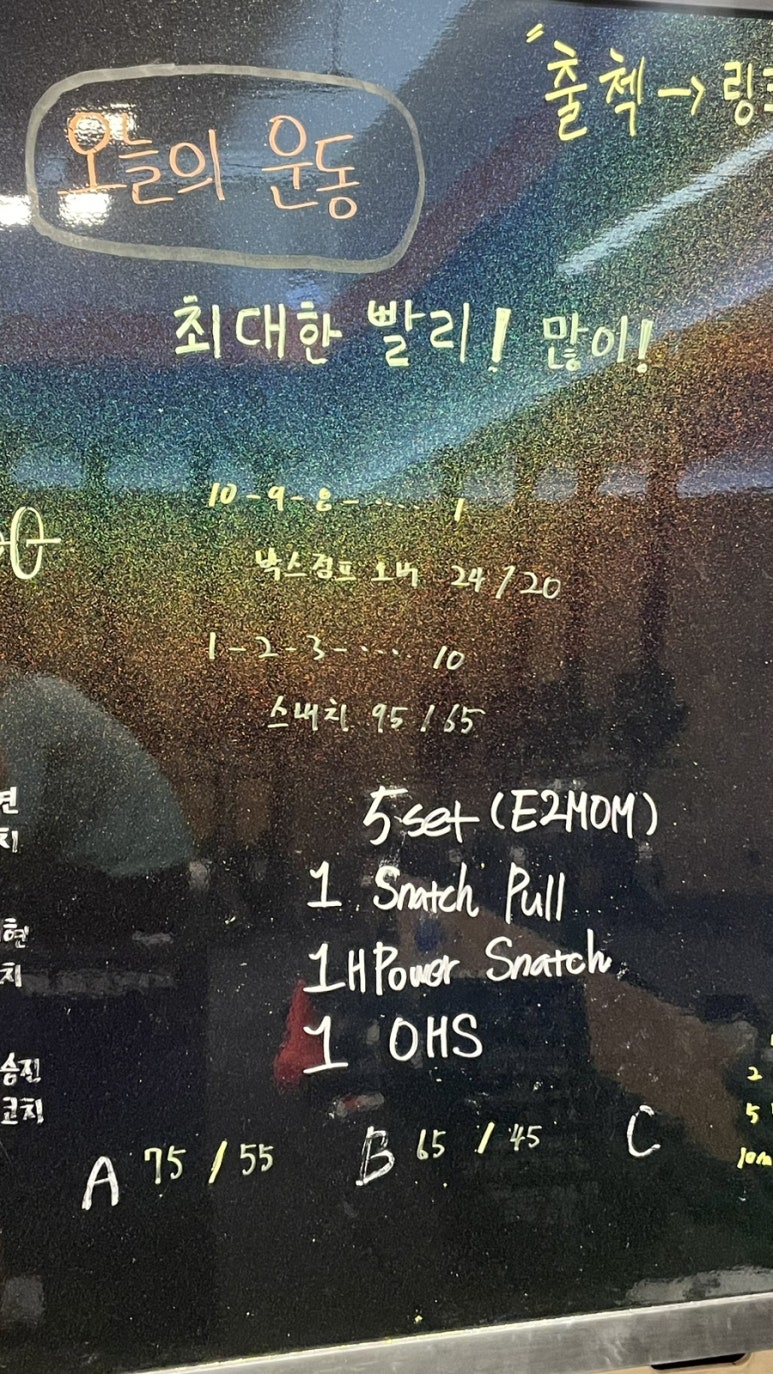 "출첵→
오늘의 운동
최대한 빨리! 많이!
10-9-8-..... 1
박스점프 오버 24/20
1-2-3-..... 10
스내치 95/65
5set (E2MOM)
1 Snatch Pull
1 HPower Snatch
1 OHS
승진
코치
A 75/55 B 65/45 C
2
5